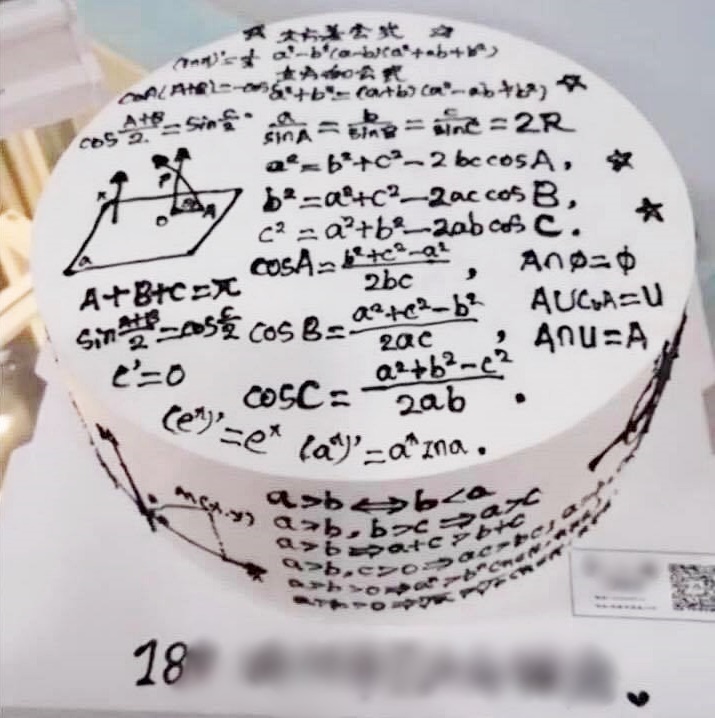 ☆ 立方差公式 ☆
a³-b³(a-b)(a²+ab+b²)
立方和公式
a³+b³=(a+b)(a²-ab+b²) ☆
cos(A+B)/2=sin C/2
a/sinA = b/sinB = c/sinC = 2R
a²=b²+c²-2bccosA,
b²=a²+c²-2accosB,
c²=a²+b²-2abcosC.
P
x
O
A
a
cosA=(b²+c²-a²)/2bc,
A∩∅=∅
A+B+C=π
A∪CᵤA=U
sin(A+B)/2=cos C/2
cosB=(a²+c²-b²)/2ac,
A∩U=A
c'=0
cosC=(a²+b²-c²)/2ab.
(eˣ)'=eˣ
(aˣ)'=aˣlna.
M(x,y)
a>b⇔b<a
a>b,b>c⇒a>c
a>b⇒a+c>b+c
a>b,c>0⇒ac>bc;
18